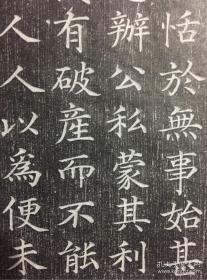 恬於無事始其
辦公私蒙其利
有破產而不能
人人以為便未